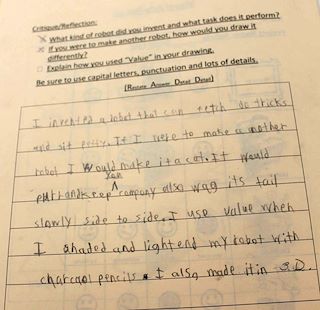 Critique/Reflection:
What kind of robot did you invent and what task does it perform?
If you were to make another robot, how would you draw it
differently?
Explain how you used "Value" in your drawing.
Be sure to use capital letters, punctuation and lots of details.
(Restate Answer Detail Detail)
I invented a robot that can fetch do tricks
and sit pretty. If I were to make a nother
robot I Would make it a cat. It would
purr and keep you company also wag its tail
slowly side to side. I use value when
I shaded and lightend my robot with
charcoal pencils. I also made it in 3.D.